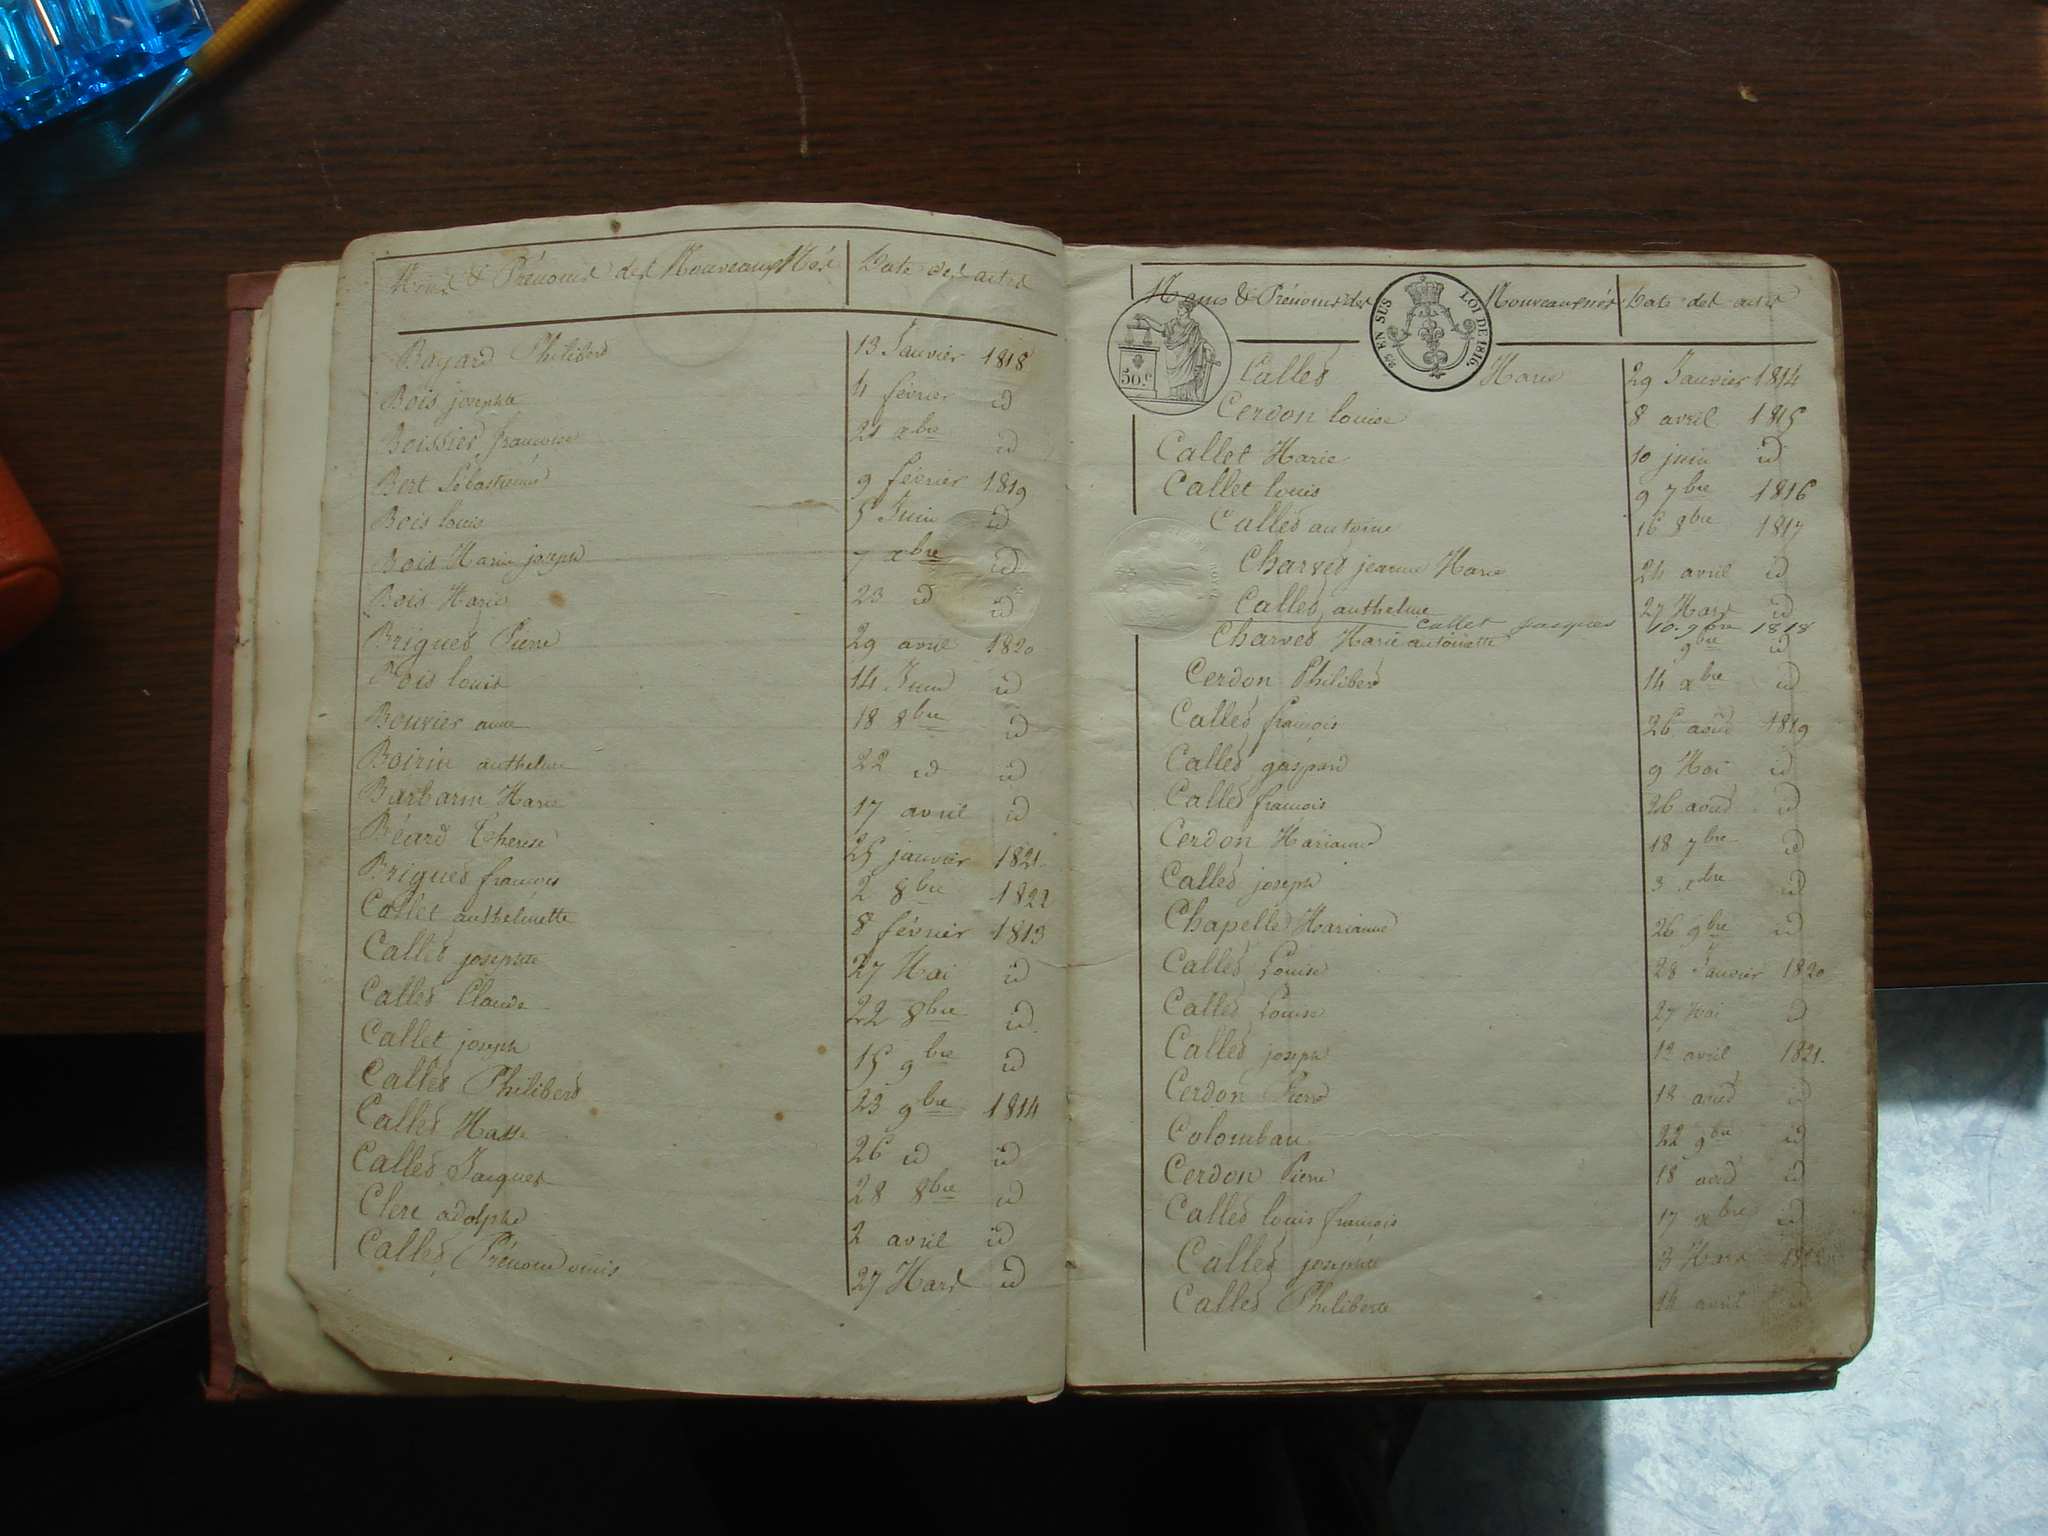 Noms & Prénoms des Nouveaux Nés Date des actes
Bayard Philiberd 13 Janvier 1818
Bois josephte 4 février id
Boissier françoise 21 xbre id
Bert Sébastienne 9 février 1819
Bois louis 5 Juin id
Bois Marie joseph 7 xbre id
Bois Marie 23 id id
Brigued Pierre 29 avril 1820
Bois louis 14 Juin id
Bouvier anne 18 8bre id
Boirin anthelme 22 id id
Barbarin Marie 17 avril id
Béard Therese 25 janvier 1821
Brigued françois 2 8bre 1822
Callet anthelmette 8 février 1813
Called josephte 27 Mai id
Called Claude 22 8bre id
Callet joseph 15 9bre id
Called Philiberd 23 9bre 1814
Called 26 id id
Called Jacques 28 8bre id
Clerc adolphe 2 avril id
Called Prénom omis 27 Mars id
Noms & Prénoms des Nouveaux nés Date des actes
50.c
EN SUS LOI DE 1816.
Called Marie 29 Janvier 1814
Cerdon louise 8 avril 1815
Callet Marie 10 juin id
Callet louis 9 7bre 1816
Called antoine 16 8bre 1817
Charved jeanne Marie 24 avril id
Called anthelme 27 Mars id
Callet jacques 10 9bre 1818
Charved Marie antoinette 9bre id
Cerdon Philiberd 14 xbre id
Called françois 26 aoud 1819
Called gaspard 9 Mai id
Called françois 26 aoud id
Cerdon Marianne 18 7bre id
Called joseph 3 xbre id
Chapelle Marianne 26 9bre id
Called Louise 28 Janvier 1820
Called Louise 27 Mai id
Called joseph 12 avril 1821
Cerdon Pierre 18 aoud id
Colomban 22 9bre id
Cerdon Pierre 18 aoud id
Called louis françois 17 xbre id
Called josephte 3 Mars 1822
Called Philiberte 14 avril id